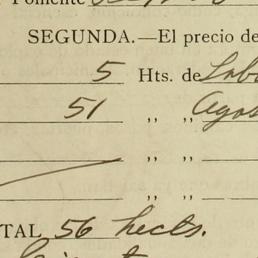 SEGUNDA.—El precio de
5 Hts. de Lab
51 „ „ Agos
„ „
„ „
TAL 56 hects.